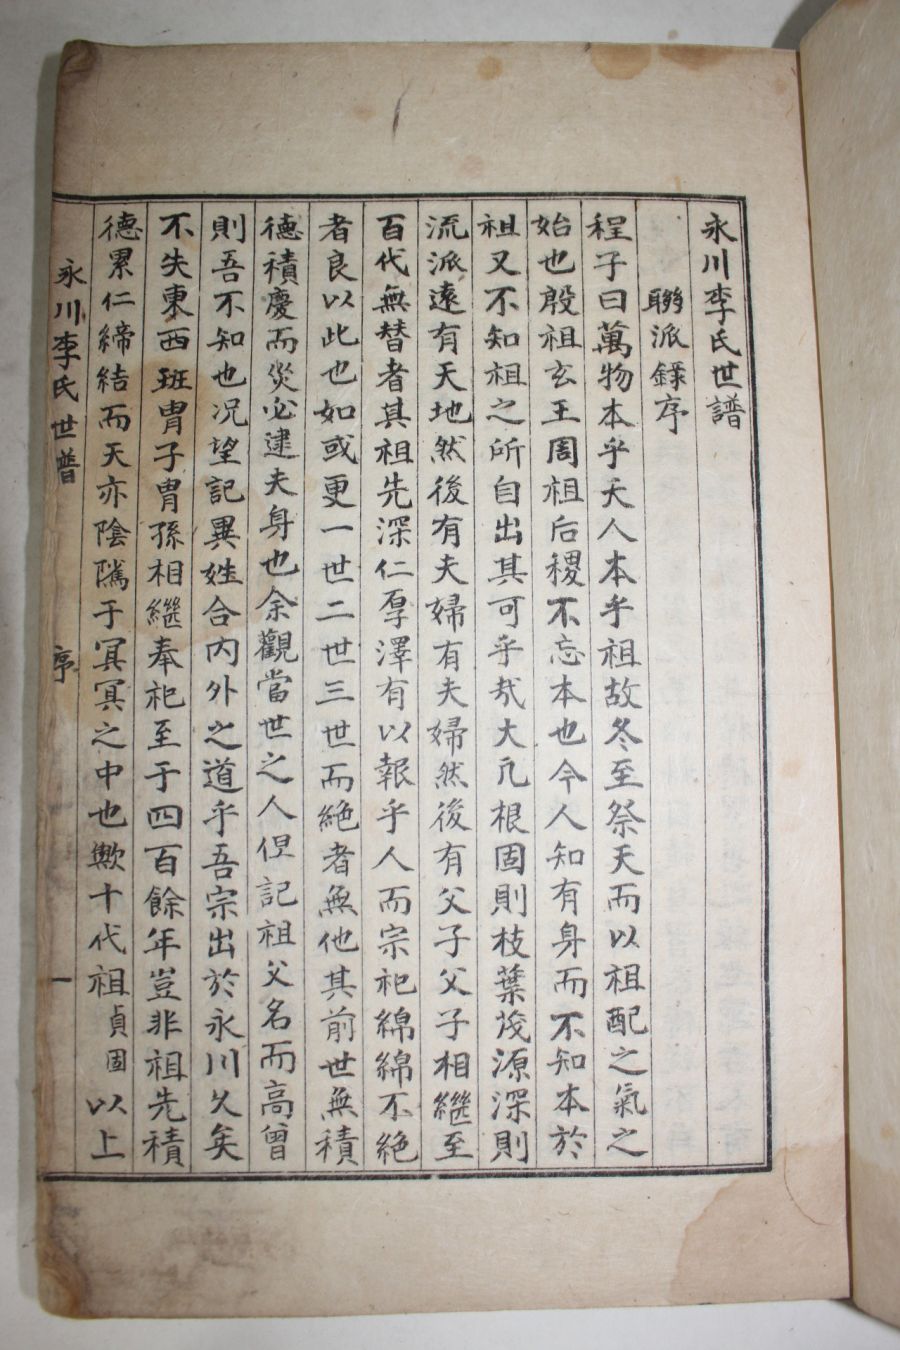 永川李氏世譜
聯派錄序
程子曰萬物本乎天人本乎祖故冬至祭天而以祖配之氣之
始也殷祖玄王周祖后稷不忘本也今人知有身而不知本於
祖又不知祖之所自出其可乎哉大凡根固則枝葉茂源深則
流派遠有天地然後有夫婦有夫婦然後有父子父子相繼至
百代無替者其祖先深仁厚澤有以報乎人而宗祀綿綿不絶
者良以此也如或更一世二世三世而絶者無他其前世無積
德積慶而災必逮夫身也余觀當世之人但記祖父名而高曾
則吾不知也况望記異姓合內外之道乎吾宗出於永川久矣
不失東西班冑子冑孫相繼奉祀至于四百餘年豈非祖先積
德累仁締結而天亦陰隲于冥冥之中也歟十代祖貞固以上
永川李氏世譜 序 一